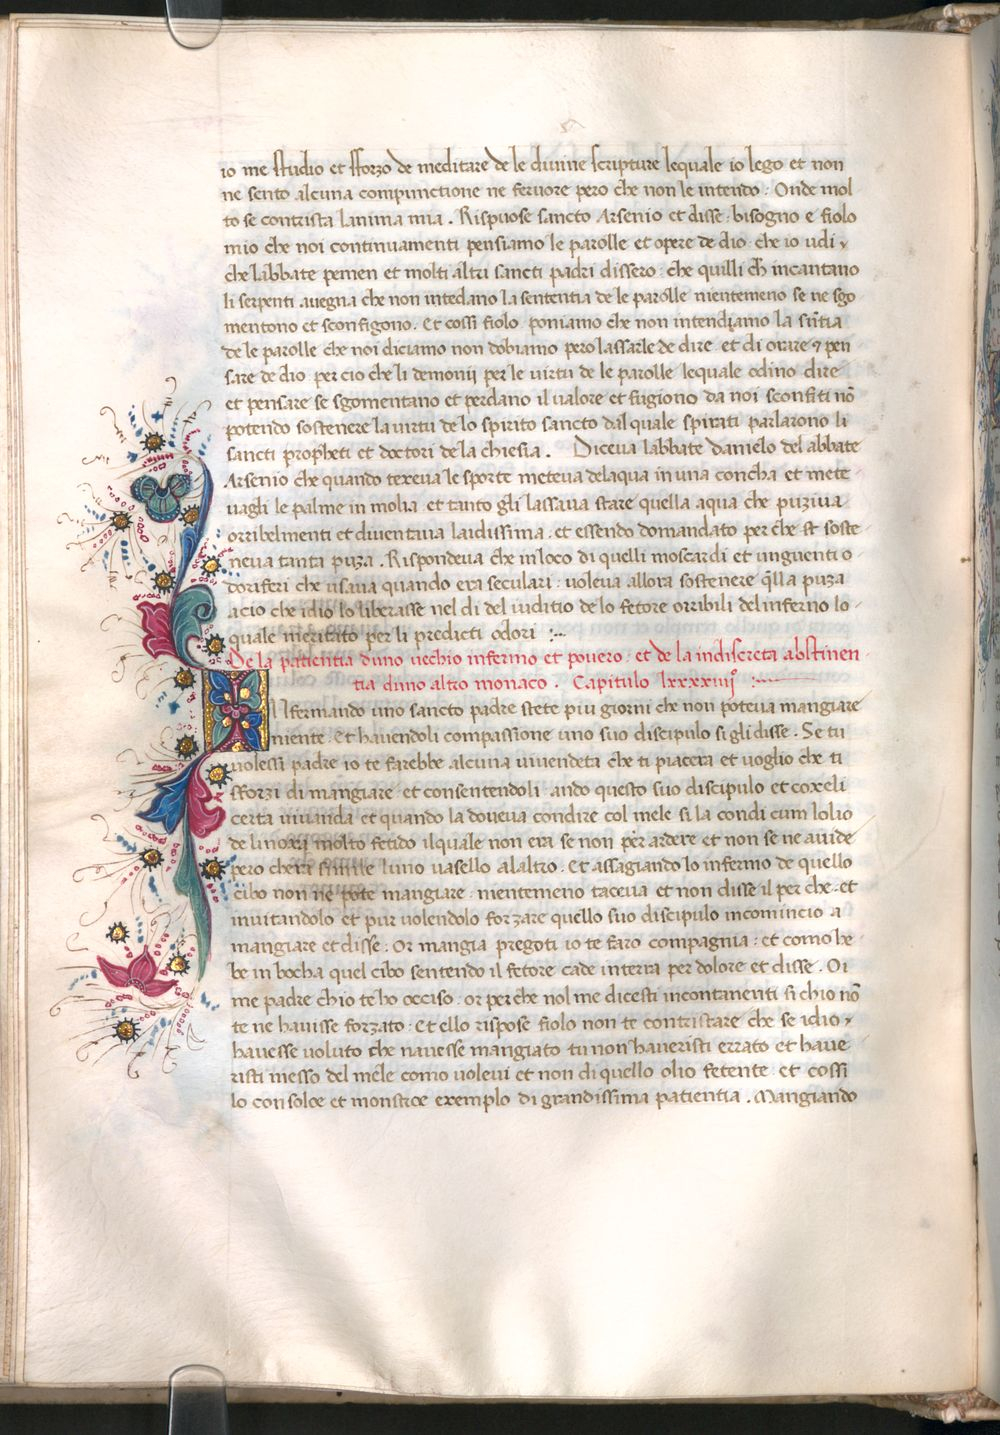 io me studio et sforzo de meditare de le diuine scripture lequale io lego et non
ne sento alcuna compunctione ne feruore pero che non le intendo : Onde mol
to se contrista lanima mia . Rispuose sancto Arsenio et disse : bisogno e fiolo
mio che noi continuamenti pensiamo le parolle et opere de dio : che io udi
che labbate pemen et molti altri sancti padri dissero : che quilli ch̄ incantano
li serpenti auegna che non intedano la sententia de le parolle nientemeno se ne sgo
mentono et sconfigono . Et cossi fiolo poniamo che non intendiamo la sn̄tia
de le parolle che noi diciamo non dobiamo pero lassarle de dire et di orare ⁊ pen
sare de dio per cio che li demonij per le uirtu de le parolle lequale odino dire
et pensare se sgomentano et perdano il ualore et fugiono da noi sconfiti nō
potendo sostenere la uirtu de lo spirito sancto dal quale spirati parlarono li
sancti propheti et doctori de la chiesia . Diceua labbate danielo del abbate
Arsenio che quando texeua le sporte meteua delaqua in una concha et mete
uagli le palme in molia et tanto gli lassaua stare quella aqua che puziua
orribelmenti et diuentaua laidissima : et essendo domandato per che st soste
neua tanta puza . Rispondeua che in loco di quelli moscardi et unguenti o
doriferi che usaua quando era seculari : uoleua allora sostenere q̄lla puza
acio che idio lo liberasse nel di del iuditio de lo fetore orribili del inferno lo
quale meritato per li predicti odori :~
De la patientia duno uechio infermo et pouero : et de la indiscreta abstinen
tia duno altro monaco . Capitulo lxxxxiiijº :
Infermando uno sancto padre stete piu giorni che non poteua mangiare
niente . Et hauendoli compassione uno suo discipulo si gli disse . Se tu
uolessi padre io te farebbe alcuna uiuendeta che ti piacera et uoglio che ti
sforzi di mangiare et consentendoli ando questo suo discipulo et coxeli
certa uiuanda et quando la doueua condire col mele si la condi cum lolio
de linoxa molto fetido ilquale non era se non per ardere et non se ne auide
pero chera simile luno uasello alaltro . Et assagiando lo infermo de quello
cibo non ne pote mangiare : nientemeno taceua et non disse il per che : et
inuitandolo et pur uolendolo forzare quello suo discipulo incomincio a
mangiare et disse . Or mangia pregoti io te faro compagnia : et como he
be in bocha quel cibo sentendo il fetore cade interra per dolore et disse . Oi
me padre chio teho occiso : or per che nol me dicesti incontanenti si chio nō
te ne hauisse forzato . Et ello rispose fiolo non te contristare che se idio
hauesse uoluto che nauesse mangiato tu non haueristi errato et haue
risti messo del mele como uoleui et non di quello olio fetente et cossi
lo consoloe et monstroe exemplo di grandissima patientia . Mangiando